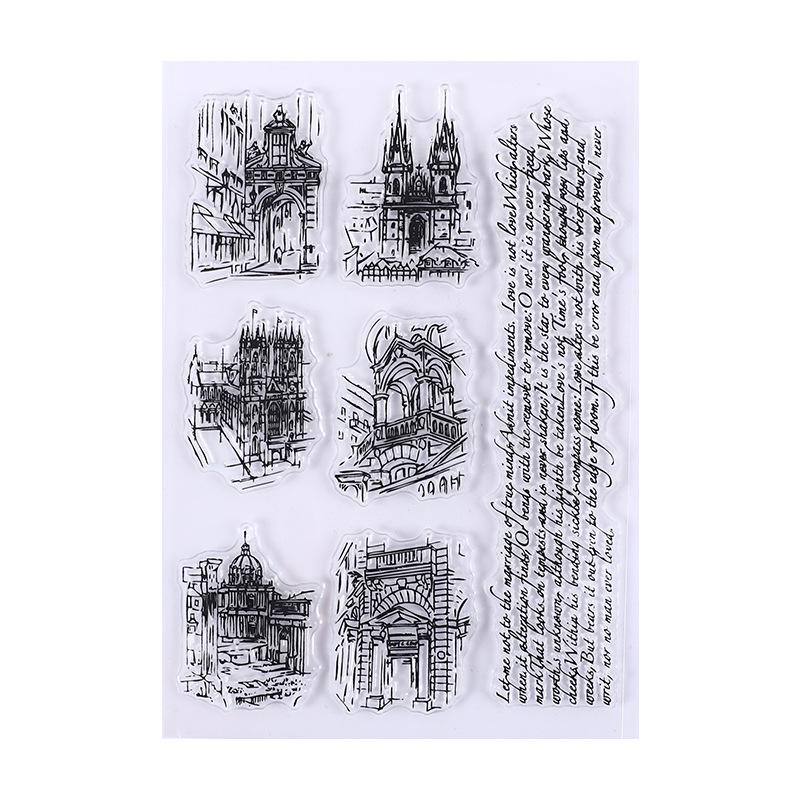 Let me not to the marriage of true minds Admit impediments. Love is not loveWhich alters
when it alteration finds,Or bends with the remover to remove:O no! it is an ever-fixed
mark That looks on tempests and is never shaken;It is the star to every wandering bark, Whose
worth's unknown,although his height be taken.Love's not Time's fool, though rosy lips and
cheeks Within his bending sickle's compass come;Love alters not with his brief hours and
weeks,But bears it out even to the edge of doom. If this be error and upon me proved, I never
writ, nor no man ever loved.